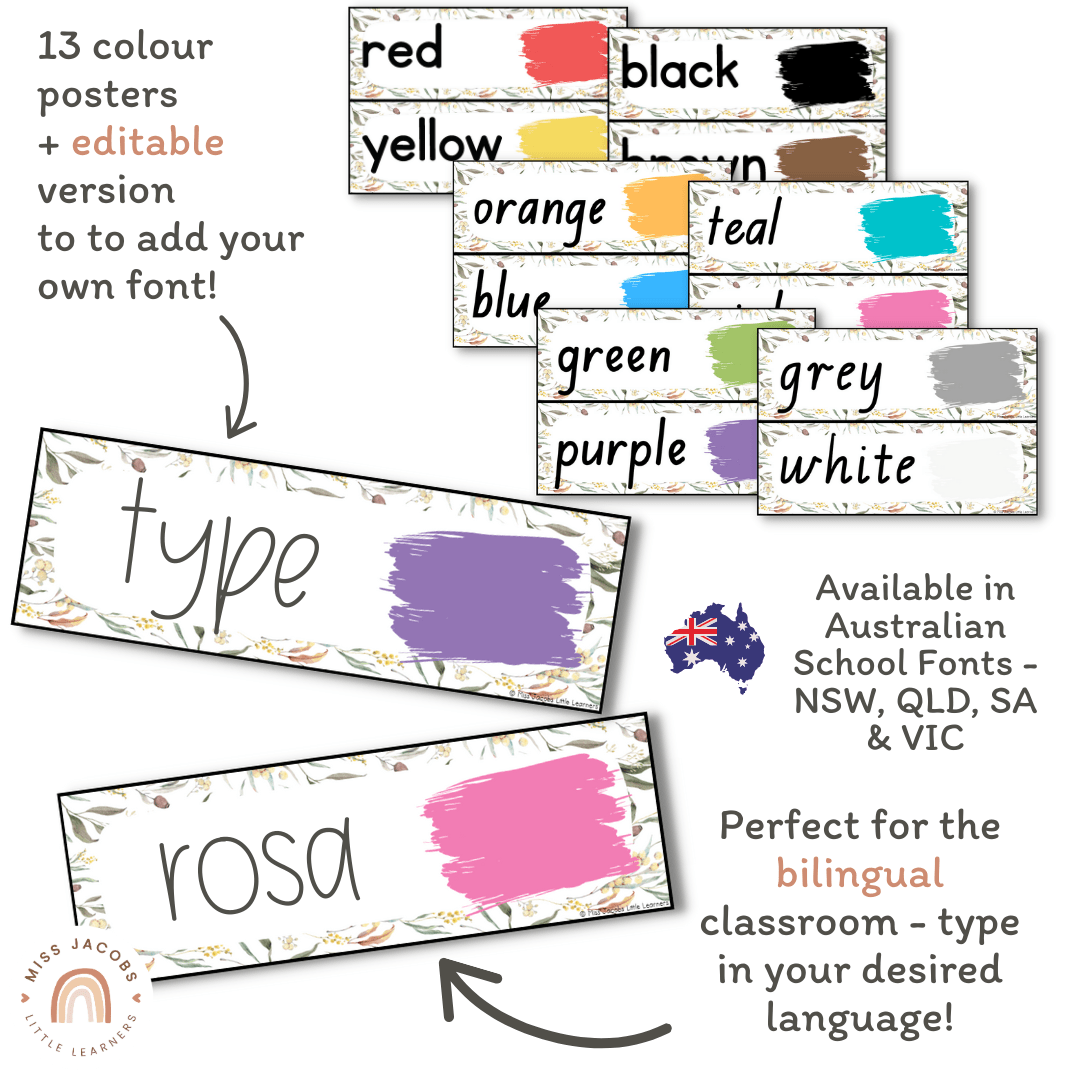 13 colour
posters
+ editable
version
to to add your
own font!
red
yellow
black
brown
orange
blue
teal
green
purple
grey
white
type
© Miss Jacobs Little Learners
rosa
© Miss Jacobs Little Learners
Available in
Australian
School Fonts -
NSW, QLD, SA
& VIC
Perfect for the
bilingual
classroom - type
in your desired
language!
MISS JACOBS
LITTLE LEARNERS